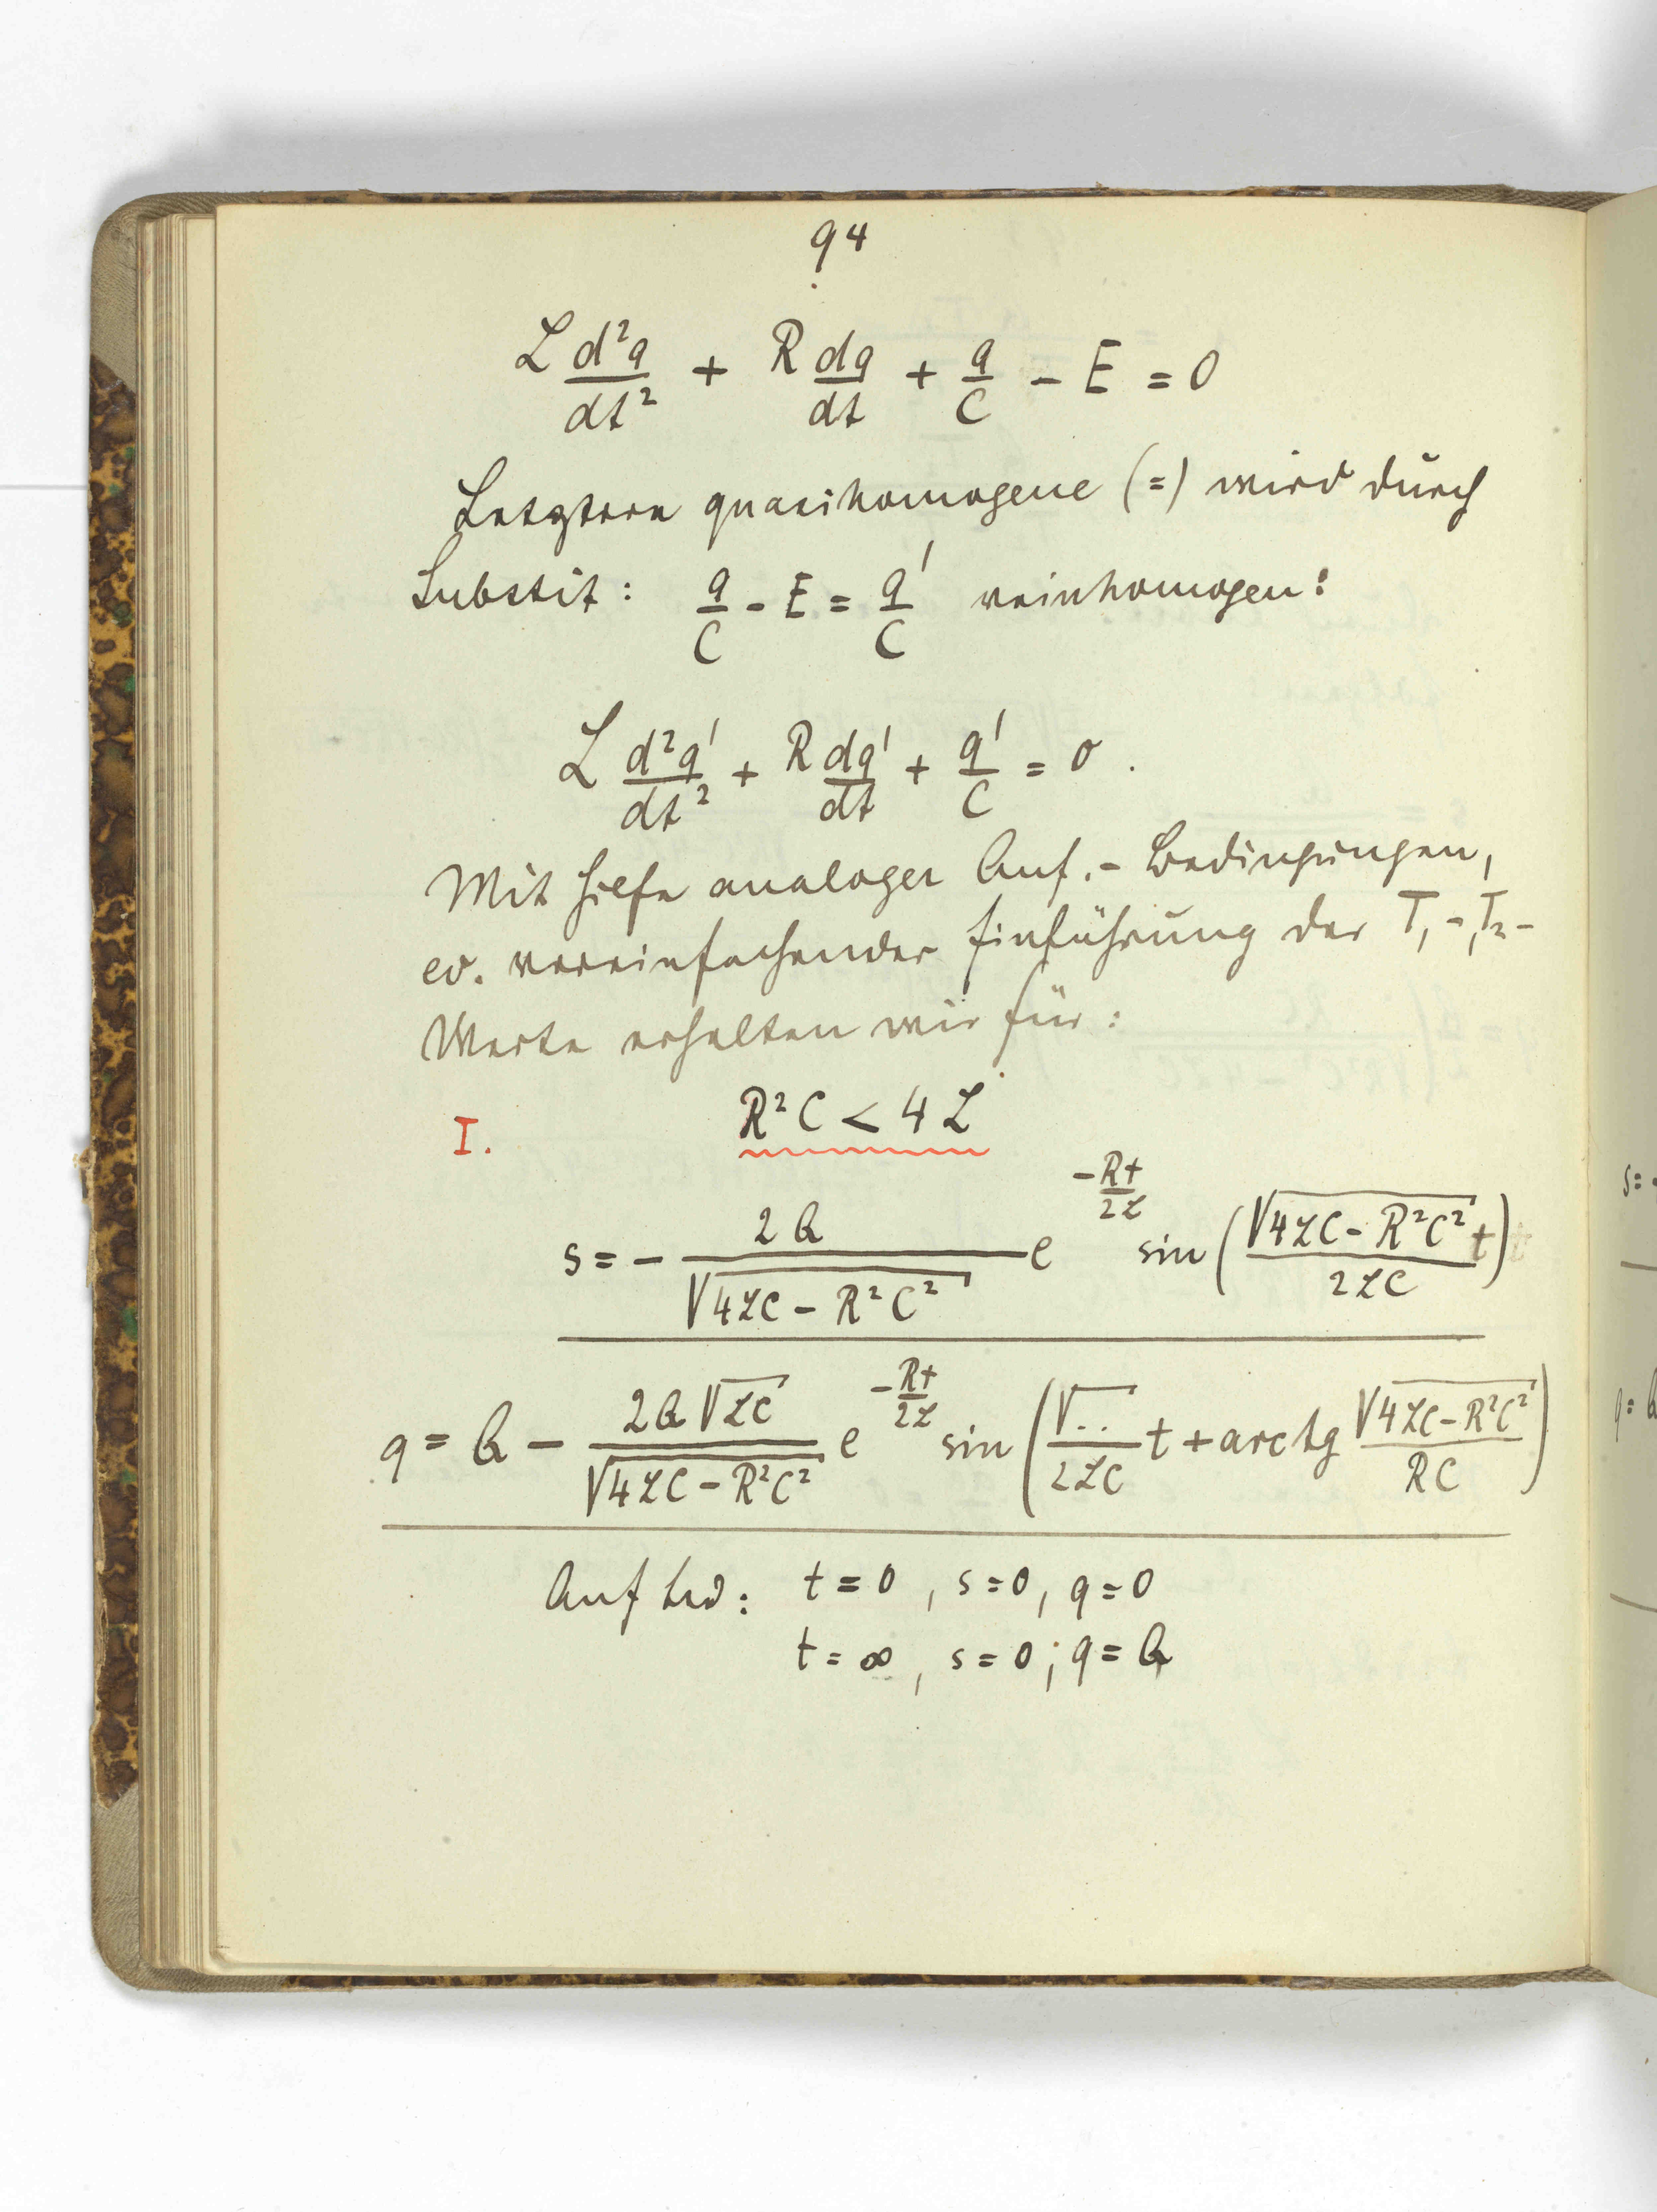 94
L d²q/dt² + R dq/dt + q/C − E = 0
Letztere quasihomogene (=) wird durch
Substit: q/C − E = q'/C reinhomogen:
L d²q'/dt² + R dq'/dt + q'/C = 0.
Mit Hilfe analoger Anf.-Bedingungen,
ev. vereinfachender Einführung der T₁-, T₂-
Werte erhalten wir für:
I. R²C < 4L
s = − 2Q/√(4LC − R²C²) e^(−Rt/2L) sin(√(4LC − R²C²)/2LC t)
q = Q − 2Q√LC/√(4LC − R²C²) e^(−Rt/2L) sin(√../2LC t + arctg √(4LC − R²C²)/RC)
Anf bed: t = 0, s = 0, q = 0
t = ∞, s = 0; q = Q